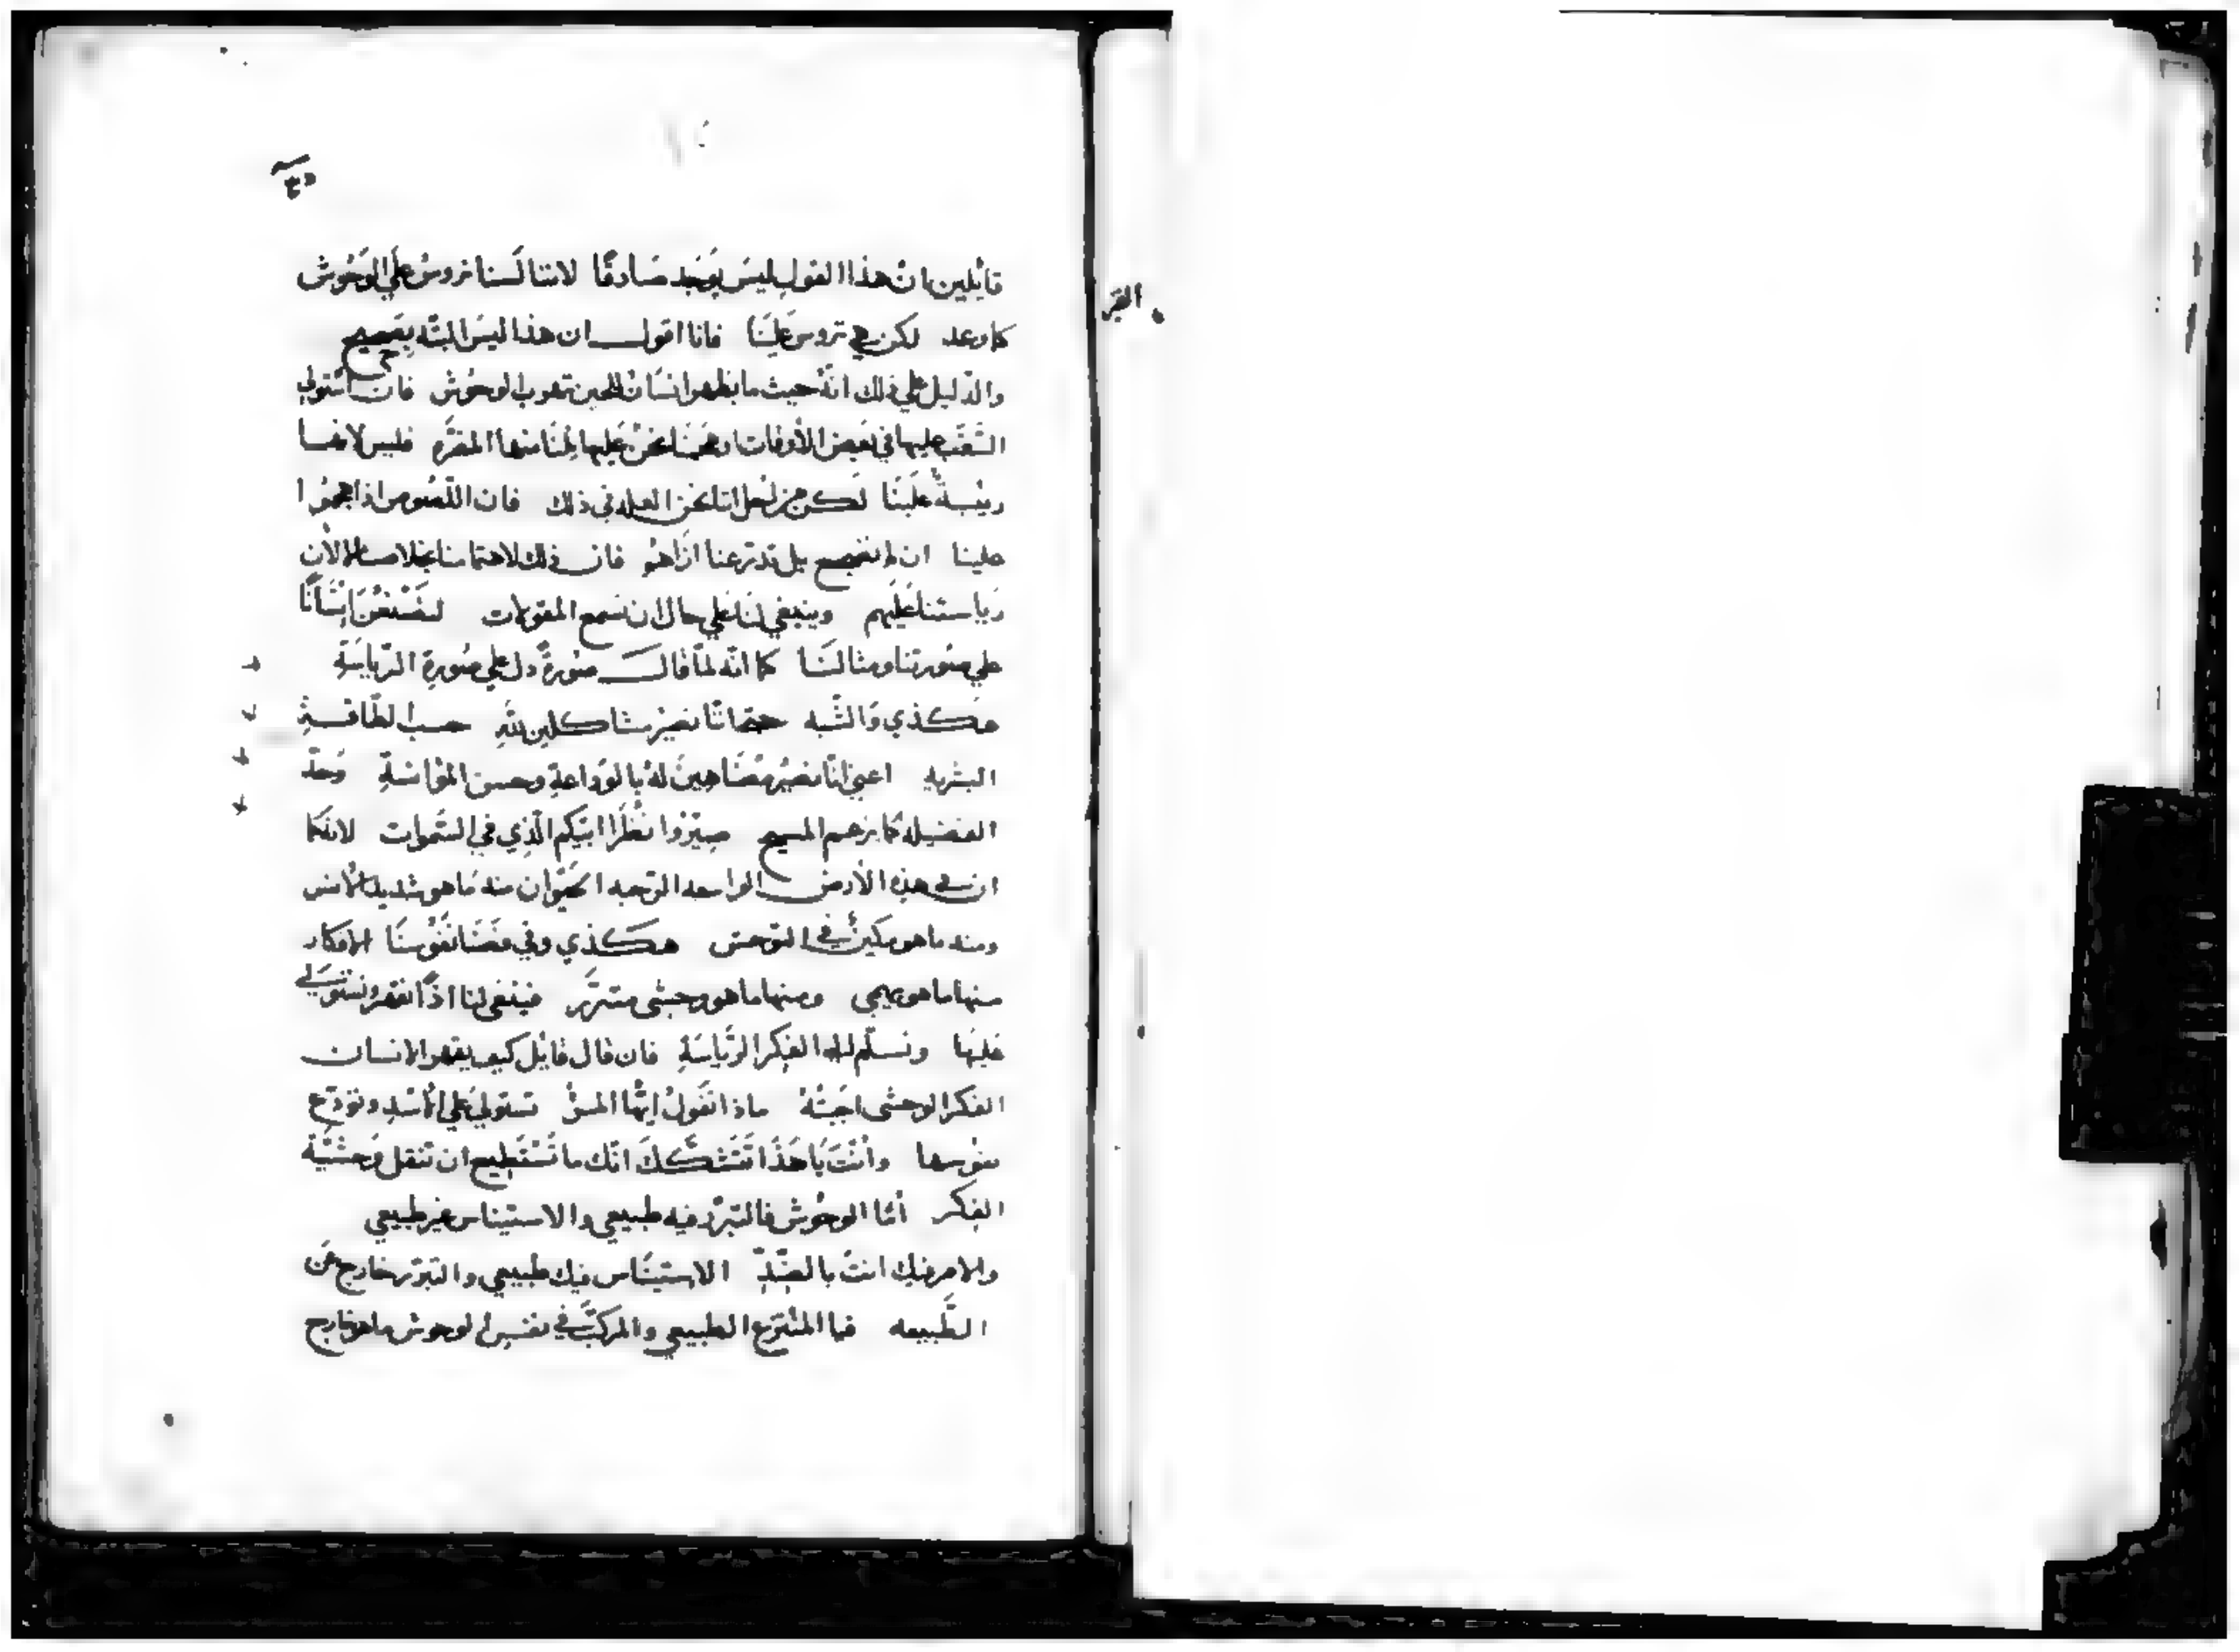 قائلين ان هذا القول ليس يوجد صَادقًا لاننا لَسنا نروسُ علَي الوَحُوش
كما وعد لكن هي تروس عَليَنا فانا اقول ان هذا ليسَ البتّه بصَحيح
والدّليل علي ذلك انّهُ حيث ما يظهر انسَان للحين تهرب الوحُوش فان استولي
السَّغَب عليها في بَعض الأوقات او هجمنا نحن عَليها نِلنَا منها المضرَّه فليس لانها
رييسَةٌ علَينَا لَكن من اجل اننا نحن العله في ذلك فان اللّصُوص اذا هجموُا
علينا ان لم نضجع بل تدرعنا ازاهمُ فان ذلك لاهتمامنا بخلاصنا لا لأن
رَياستنا عَلَيهم وينبغي لنَا عَلي حال ان نسَمع المقولات لنَصْنعُنَ انسَانًا
علي صُورتنا ومثالنَا كما انّه لمّا قالَ صُورةً دل علي صُورةِ الرّيَاسَةِ
هَكذي وَالشّبه حتى اننا نصيرُ مشاكلين للهِ حسبَ الطّاقةِ
البشريه اعني انّا نصيرُ مُضَاهينَ لهُ بالوَداعةِ وحسن المؤانسَةِ وَحدّ
الفضيلة كما يزعم المسيح صِيرُوا نُظَرا ابيَكم الّذِي في السَّموات لانه كما
ان في هذِه الأرض الواسعه الرّحبه الحيَوان منه مَا هو شديد الأنس
ومنه ما هو مكينٌ في التوحش هكذي وفي فضَا نفُوسنَا الافكار
منها ما هو بهيمي ومنها ما هو وحشي متنمّر فينبغي لنا اذًا نقهر ونستَولي
عليَها ونسلّم لهذا الفِكر الرّيَاسَةِ فان قال قائِل كيف يقهر الانسان
الفكر الوحشي اجَبتُهُ ماذا تَقولُ ايُّها المرءُ تستولي عَلي الأسَدِ وتودّع
نفوسها وأنتَ يَا هَذَا تَتَشكَّكَ انّك ما تَسْتَطِيع ان تنقل وَحشيّةَ
الفِكر أمّا الوحُوش فالتنمّر فيه طبيعي والاستيناس غير طبيعي
والامر فيك انتَ بالضِدِّ الاستينَاس فيك طبيعي والتنمّر خارج عَن
الطَّبيعه فما المنتزع الطبيعي والمركّب في نفس الوحوش ما هو خارج